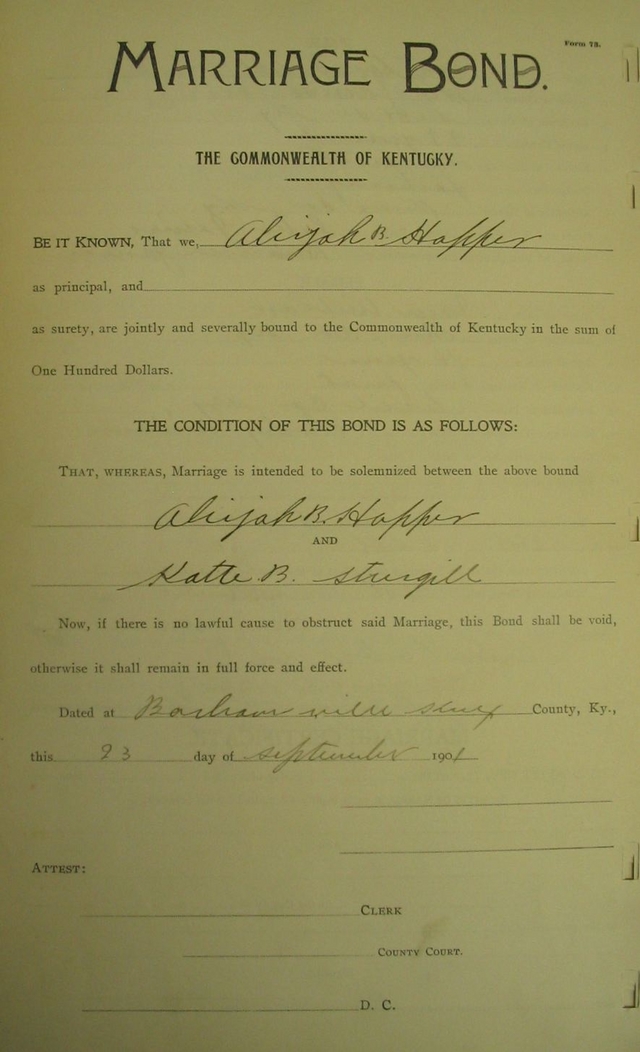 Form 73.
MARRIAGE BOND.
THE COMMONWEALTH OF KENTUCKY.
BE IT KNOWN, That we, Alijah B. Hopper
as principal, and
as surety, are jointly and severally bound to the Commonwealth of Kentucky in the sum of
One Hundred Dollars.
THE CONDITION OF THIS BOND IS AS FOLLOWS:
THAT, WHEREAS, Marriage is intended to be solemnized between the above bound
Alijah B. Hopper
AND
Katte B. Sturgill
Now, if there is no lawful cause to obstruct said Marriage, this Bond shall be void,
otherwise it shall remain in full force and effect.
Dated at County, Ky.,
this 23 day of september 1901
ATTEST:
CLERK
COUNTY COURT.
D. C.